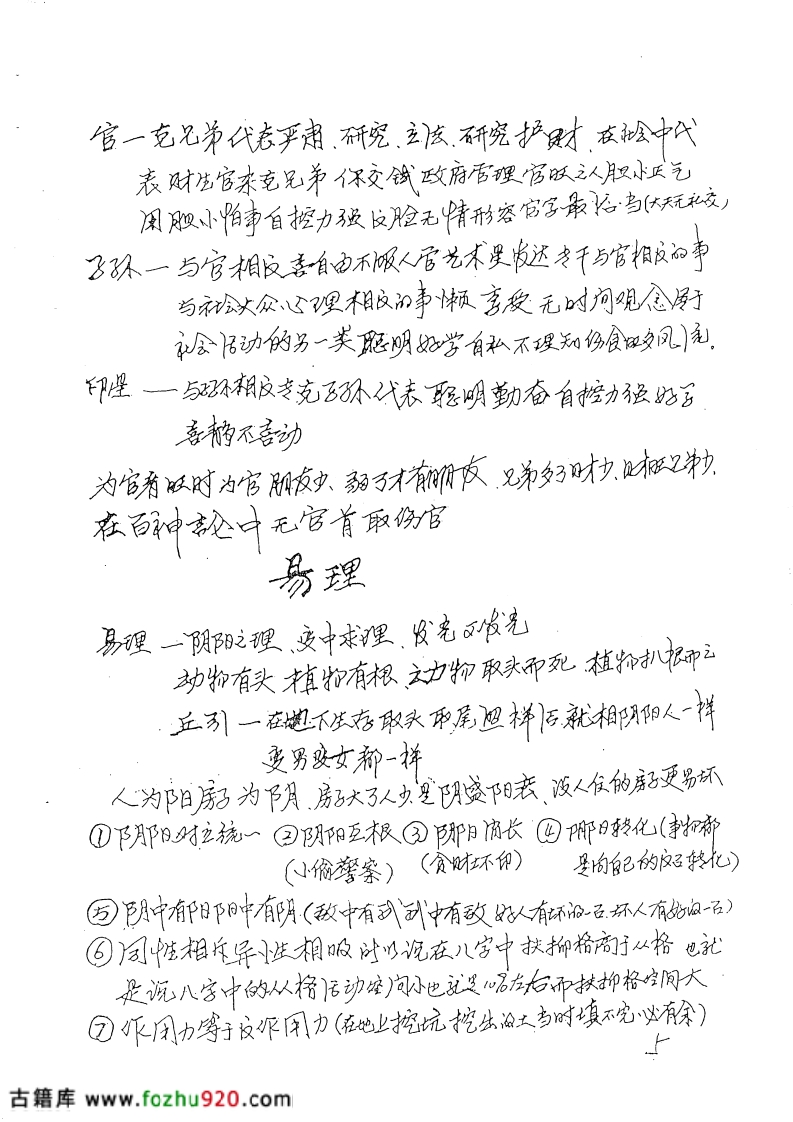 官一克兄弟代表严肃、研究、立法、研究护财、在社会中代
表财生官来克兄弟 保交钱政府管理官旺之人胆小正气
用胆小怕事自控力强反脸无情形容官字最恰当(大天无私交)
子孙一与官相反喜自由不服人管艺术界发达专干与官相反的事
与社会大众心理相反的事懒 享受 无时间观念属于
社会活动的另一类聪明好学自私不理知伤食旺多风流。
印星——与子孙相反专克子孙代表聪明勤奋自控力强好学
喜静不喜动
为官者旺时为官朋友少、弱了才有朋友、兄弟多了财少、财旺兄弟少、
在百神论中无官首取伤官
易理
易理 一阴阳之理、变中求理、发光不发光
动物有头 植物有根、动物取头而死、植物扒根而亡
丘引一在地下生存取头取尾照样活就相阴阳人一样
变男变女都一样
人为阳房子为阴、房子大了人少是阴盛阳衰、没人住的房子更易坏
①阴阳对立统一 ②阴阳互根 ③阴阳消长 ④阴阳转化(事物都
(小偷警察) (贪财坏印) 是向自己的反面转化)
⑤阴中有阳阳中有阴(敌中有我我中有敌 好人有坏的一面.坏人有好的一面)
⑥同性相斥异性相吸所以说在八字中扶抑格高于从格 也就
是说八字中的从格活动空间小也就是10名左右而扶抑格空间大
⑦作用力等于反作用力(在地上挖坑挖出的土当时填不完必有余)
5
古籍库 www.fozhu920.com